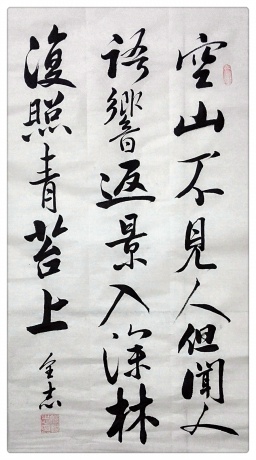 空山不見人但聞人
語響返景入深林
復照青苔上
金志